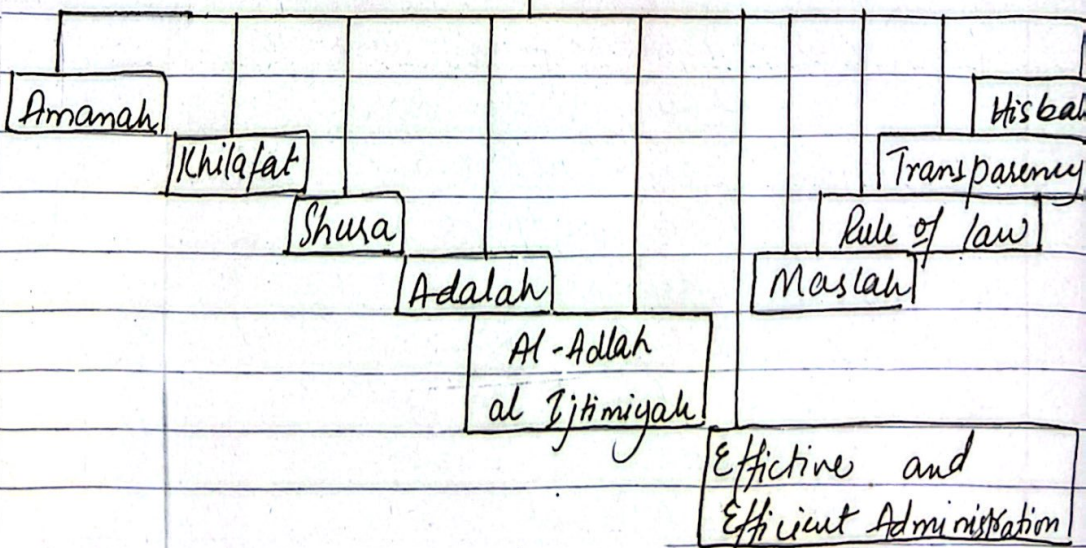 Amanah
Khilafat
Shura
Adalah
Al-Adlah
al Ijtimiyah
Effictive and
Efficient Administration
Maslah
Rule of law
Transparency
Hisbah